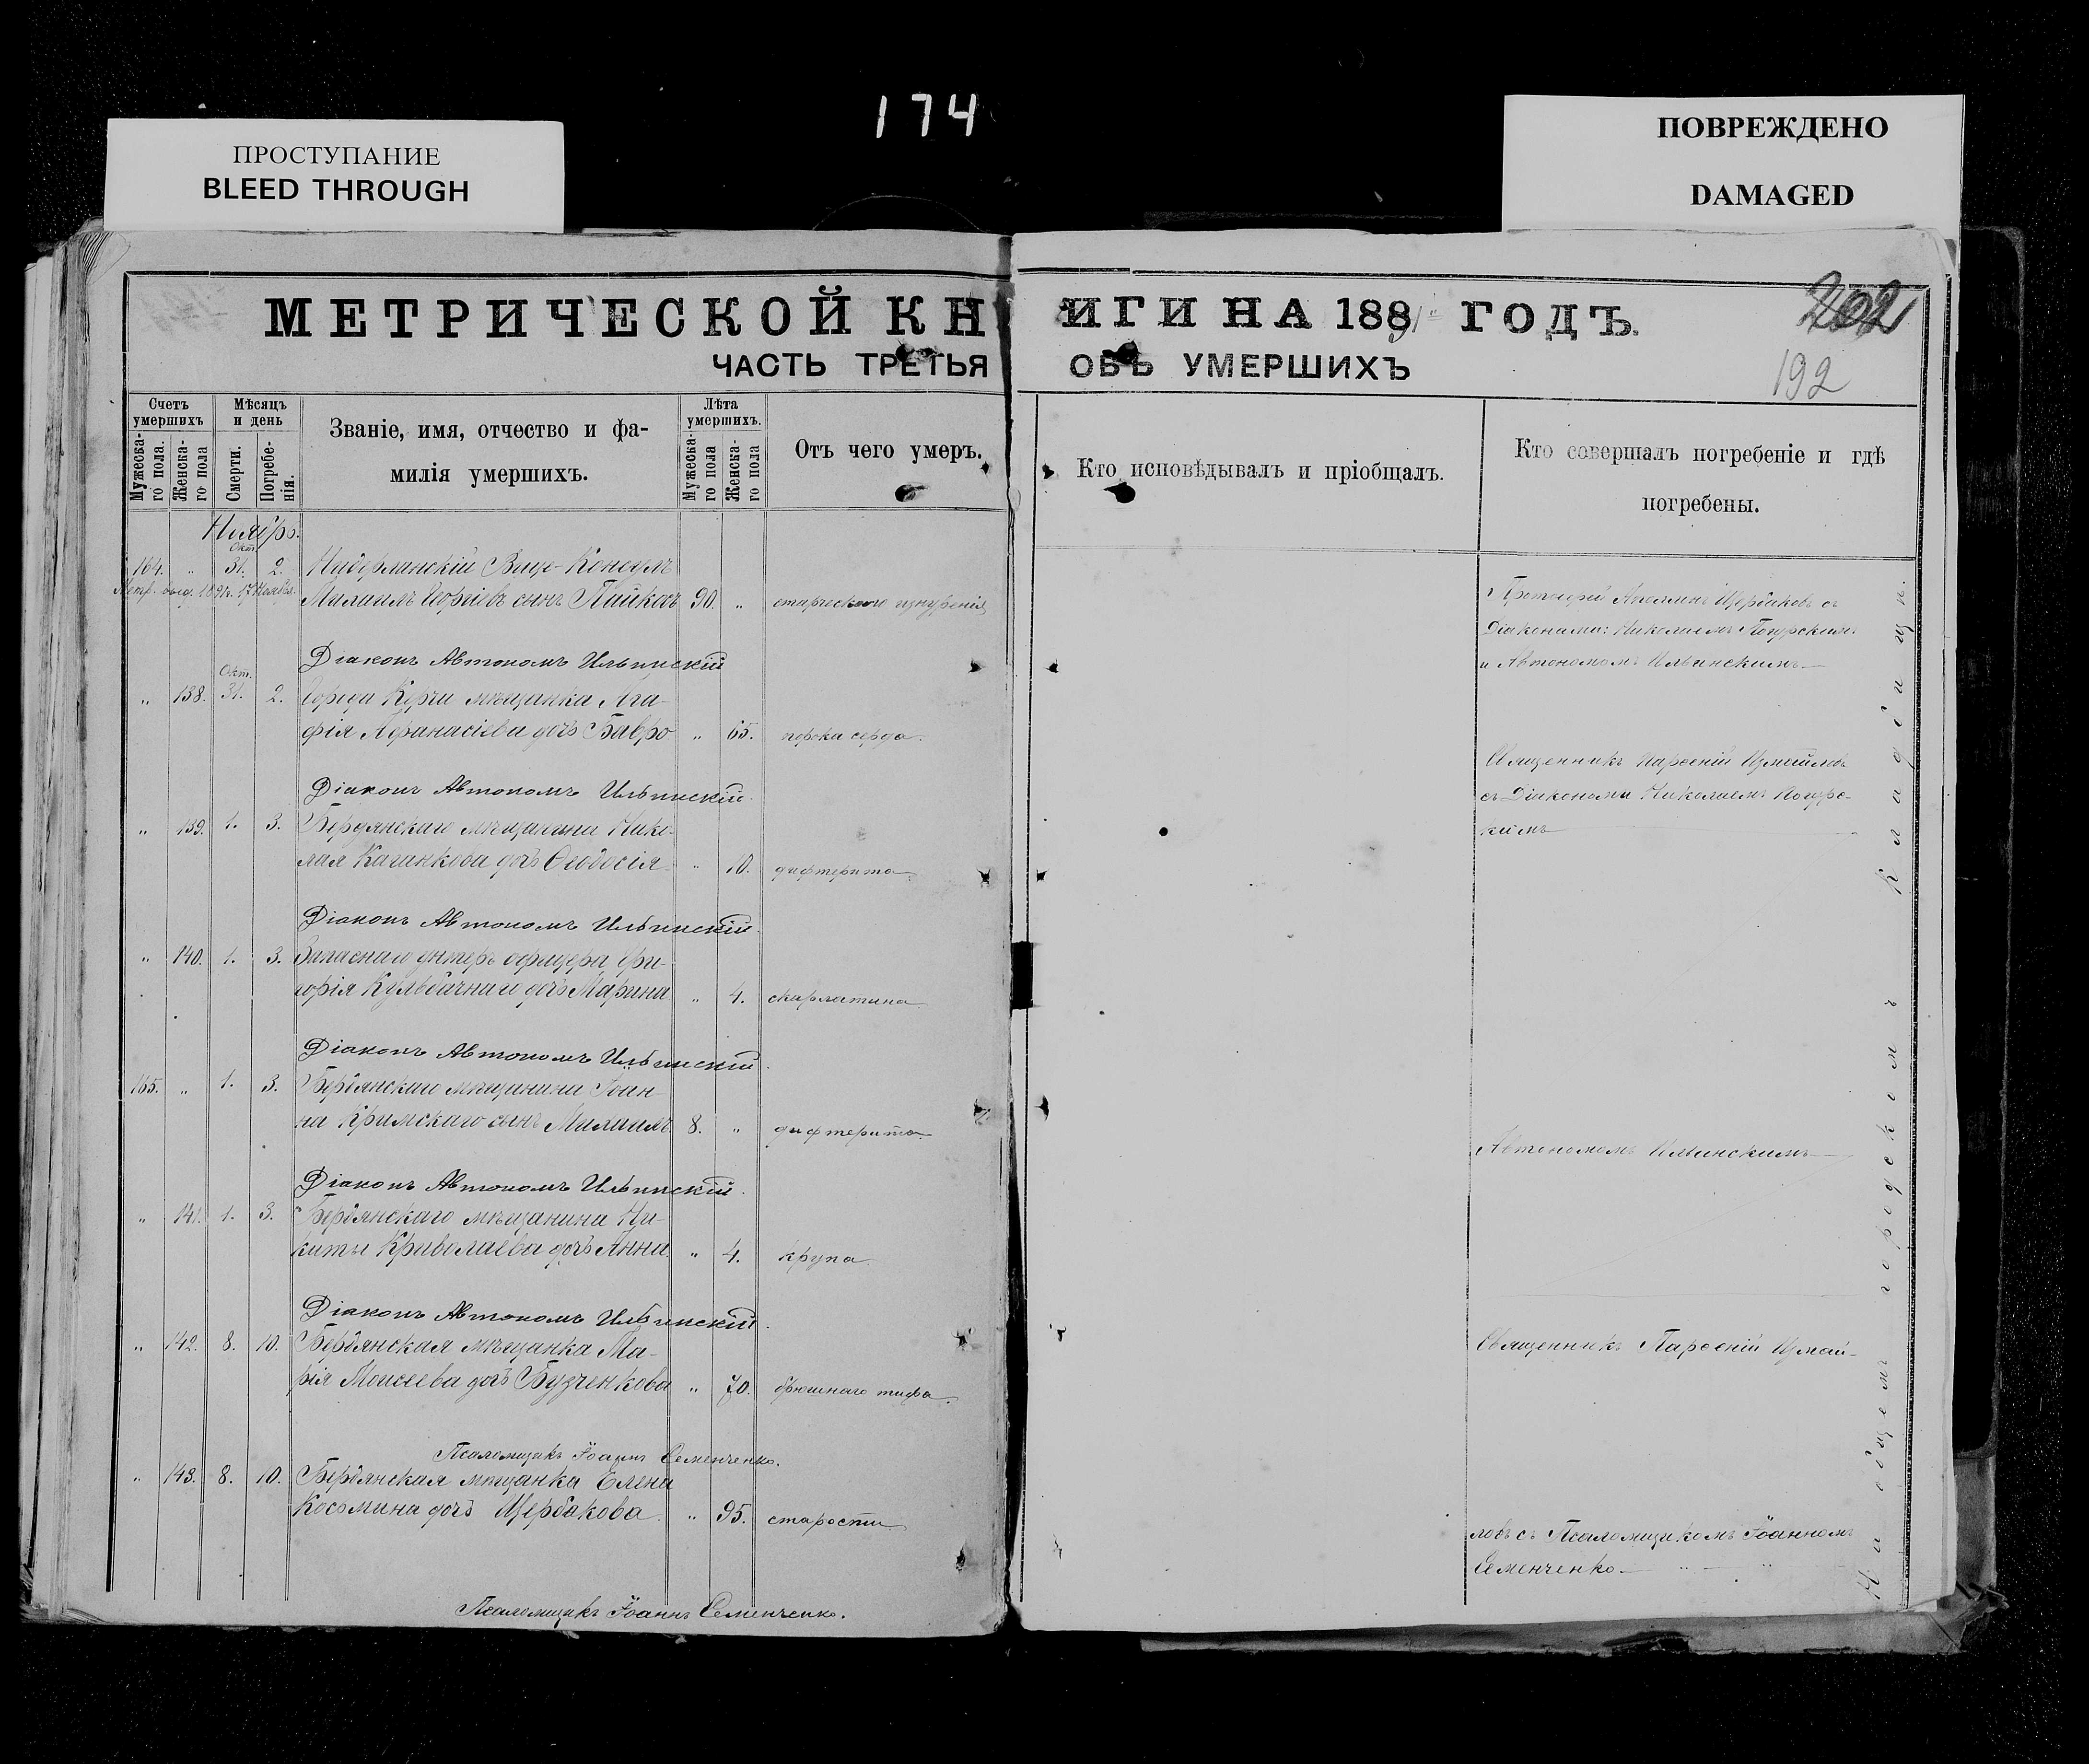 174
ПРОСТУПАНИЕ
BLEED THROUGH
ПОВРЕЖДЕНО
DAMAGED
МЕТРИЧЕСКОЙ КНИГИ НА 1891 ГОДЪ.
202
ЧАСТЬ ТРЕТЬЯ ОБЪ УМЕРШИХЪ
192
Счетъ умершихъ
Мужеска-го пола.
Женска-го пола
Мѣсяцъ и день
Смерти.
Погребе-нія.
Званіе, имя, отчество и фа-
милія умершихъ.
Лѣта умершихъ.
Мужеска-го пола
Женска-го пола
Отъ чего умеръ.
Кто исповѣдывалъ и пріобщалъ.
Кто совершалъ погребеніе и гдѣ
погребены.
Ноябрь.
Окт.
164. " 31. 2. Нидерланскій Вице-Консулъ
Метр. выд. 1891г. 17 Ноября.
Михаилъ Георгіевъ сынъ Пайковъ 90. " старческаго изнуренія
Діаконъ Автономъ Ильинскій
Окт.
" 138. 31. 2. Города Керчи мѣщанка Ага-
фія Афанасіева дочь Бавро " 65. порока серда.
Діаконъ Автономъ Ильинскій.
" 139. 1. 3. Бердянскаго мѣщанина Нико-
лая дочь Ѳеодосія " 10. дифтерита
Діаконъ Автономъ Ильинскій.
" 140. 1. 3. Запаснаго унтеръ офицера Гри-
горія Кульбачнаго дочь Марина " 4. скарлатина
Діаконъ Автономъ Ильинскій.
165. " 1. 3. Бердянскаго мѣщанина Іоан-
на Кримскаго сынъ Михаилъ 8. " дифтерита
Діаконъ Автономъ Ильинскій.
" 141. 1. 3. Бердянскаго мѣщанина Ни-
киты дочь Анна " 4. крупа
Діаконъ Автономъ Ильинскій.
" 142. 8. 10. Бердянская мѣщанка Ма-
рія Моисеева дочь Бузченкова " 70. брюшнаго тифа
Псаломщикъ Іоаннъ Семенченко.
" 143. 8. 10. Бердянская мѣщанка Елена
Косьмина дочь Щербакова " 95. старости
Псаломщикъ Іоаннъ Семенченко.
Протоіерей Щербаковъ съ
Діаконами: Николаемъ Погорскимъ
и Автономомъ Ильинскимъ
Священникъ Парѳеній Измаиловъ
съ Діаконами Николаемъ Погорс-
кимъ
Автономомъ Ильинскимъ
Священникъ Парѳеній Измаи-
ловъ съ Псаломщикомъ Іоанномъ
Семенченко
На общемъ городскомъ кладбищѣ.